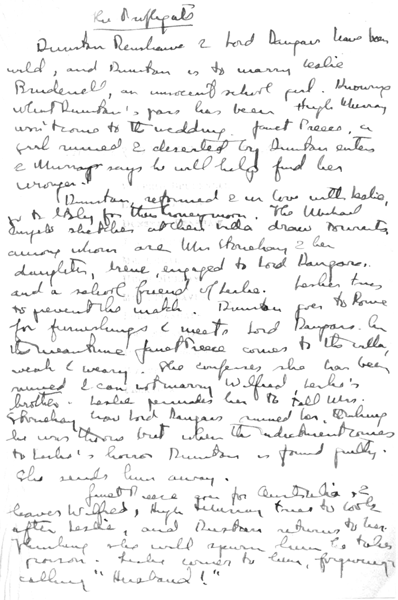 The Profligate
Dunstan Renshawe & Lord Dangars have been
wild, and Dunstan is to marry Leslie
Brudenell, an innocent school girl. Knowing
what Dunstan's past has been Hugh Murray
won't come to the wedding. Janet Preece, a
girl ruined & deserted by Dunstan enters
& Murray says he will help find her
wronger.
Dunstan, reformed & in love with Leslie,
go to Italy for their honeymoon. The Michael
Angelo sketches at their villa draw tourists
among whom are Mrs Stonehay & her
daughter, Irene, engaged to Lord Dangars.
and a school friend of Leslie. Leslie tries
to prevent the match. Dunstan goes to Rome
for furnishings & meets Lord Dangars. In
the meantime Janet Preece comes to the villa,
weak & weary. She confesses she has been
ruined & can not marry Wilfred, Leslie's
brother. Leslie persuades her to tell Mrs.
Stonehay how Lord Dangars ruined her, thinking
he was the one but when the indictment comes
to Leslie's horror Dunstan is found guilty.
She sends him away.
Janet Preece goes for Australia &
leaves Wilfred, Hugh Murray tries to look
after Leslie, and Dunstan returns to her.
Thinking she will spurn him he takes
poison. Leslie comes to him, forgiving,
calling "Husband!"